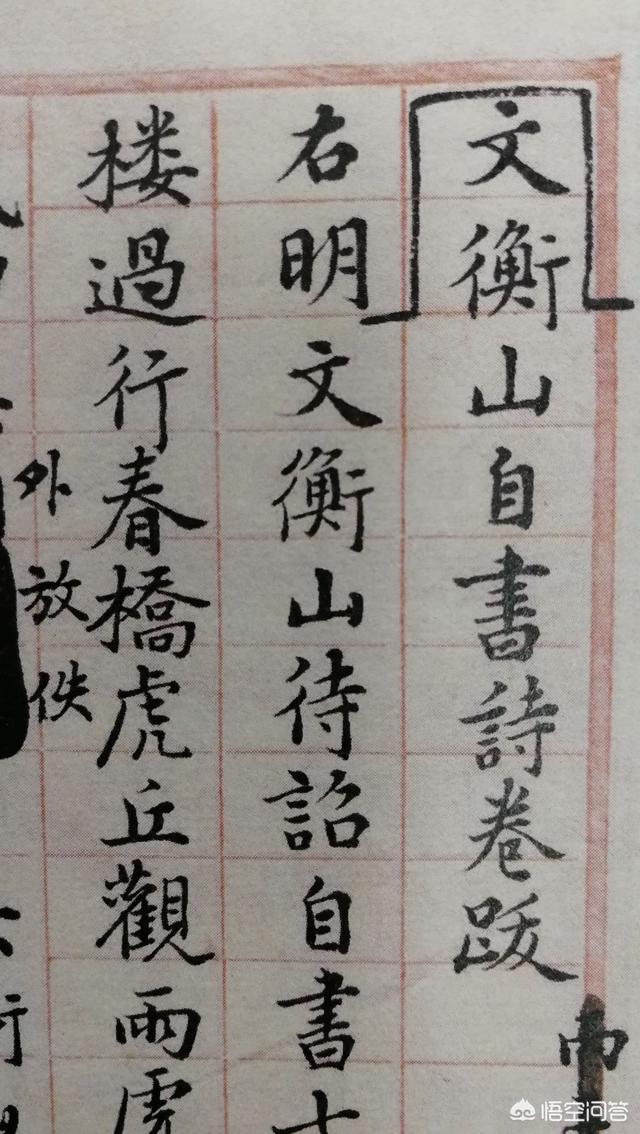 文衡山自書詩卷跋
右明文衡山待詔自書
楼過行春橋虎丘觀雨
外放佚
悟空问答